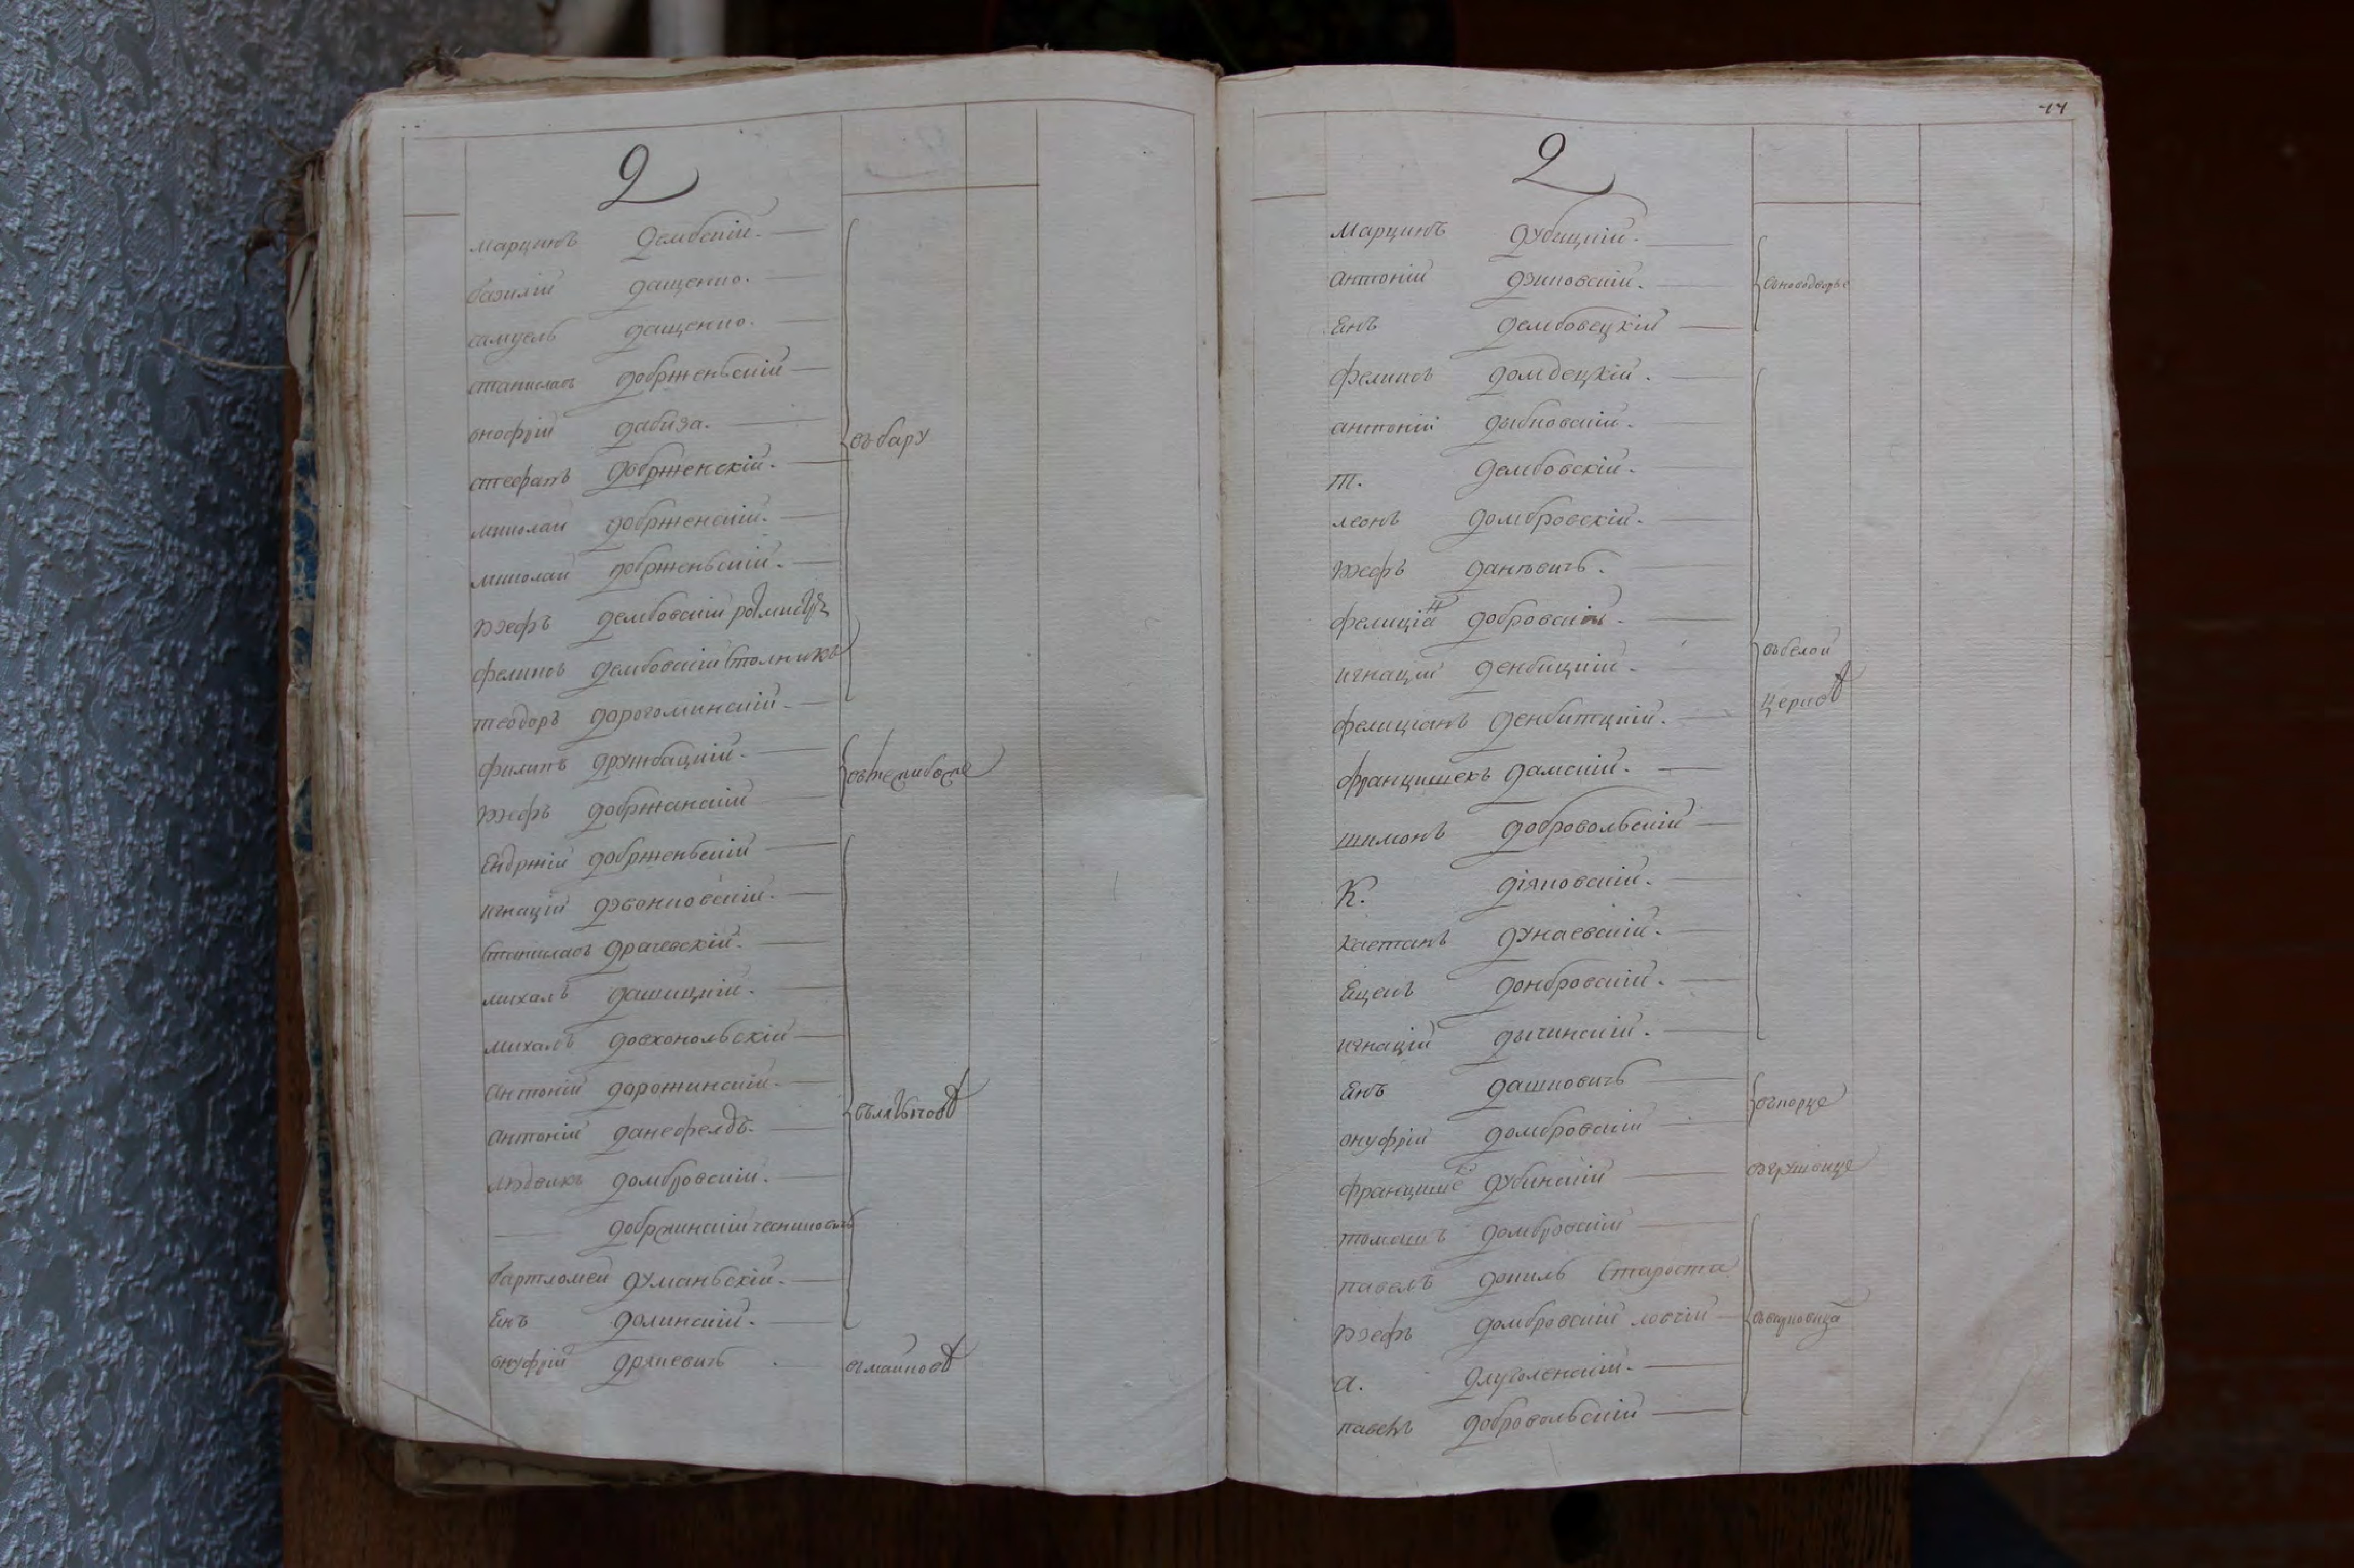 Д
марцинъ Дембскій.
базилій дащенко.
самуель дащенко.
станиславъ добрженьскій
онофрій дабиза.
стефанъ добрженскій. въ бару
миколай добрженскій.
миколай добрженьскій.
юзефъ дембовскій ротмистръ
феликсъ дембовскій столникъ
теодоръ дорогоминскій.
филипъ дружбацкій.
юзефъ добржанскій
Ендржій добрженьскій
игнацій дзвонковскій.
станиславъ драчевскій.
михалъ дашицкій.
михалъ довхонольскій
антоній дорожинскій.
антоній данефелдъ.
людвикъ домбровскій.
добржинскій чесниковичъ
бартломей думаньскій.
Енъ долинскій.
онуфрій дряневичъ
11
Д
марцинъ дубицкій.
антоній дзиковскій.
Енъ дембовецкій
феликсъ домбецкій.
антоній дыбковскій.
т. дембовскій.
леонъ домбровскій.
юзефъ даневичъ.
фелиціа добровскій.
игнацій денбицкій. въ белой
фелиціанъ денбитцкій. церкве
францишекъ дамскій.
шимонъ добровольскій
К. діяковскій.
каетанъ дунаевскій.
Ецекъ донбровскій.
игнацій дычинскій.
Енъ дашковичъ
онуфрій домбровскій
францише дубинскій
томашъ домбровскій
павелъ дониль староста
юзефъ домбровскій ловчій
а. длуголенскій.
павелъ добровольскій